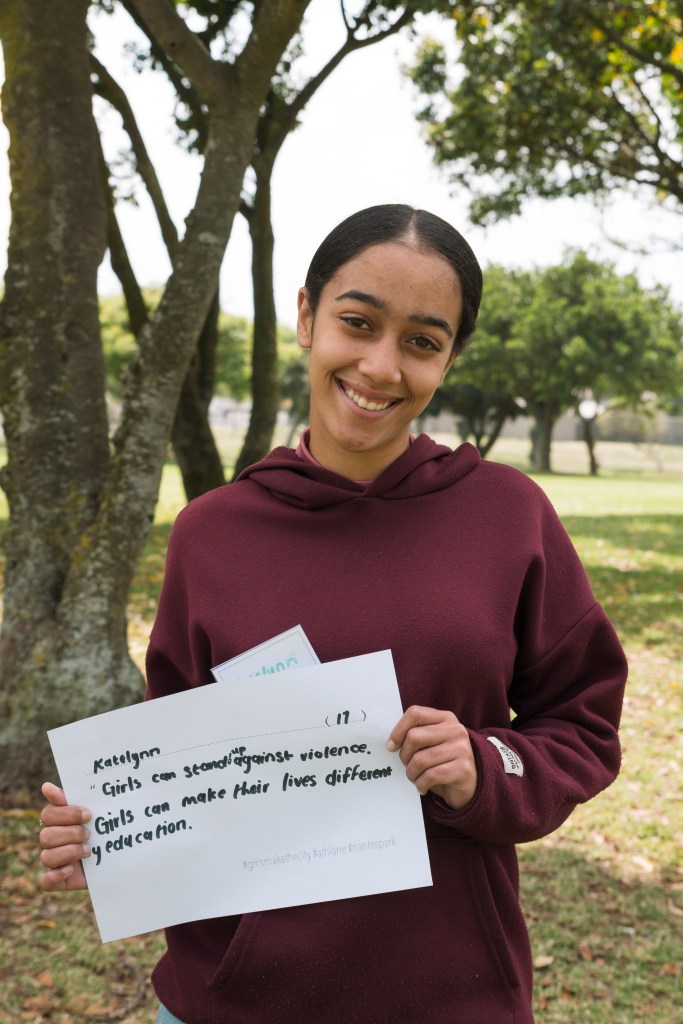 Katelynn ( 17 )
"Girls can stand up against violence.
Girls can make their lives different
y education.
#girlsmakethecity #athlone #nantespark